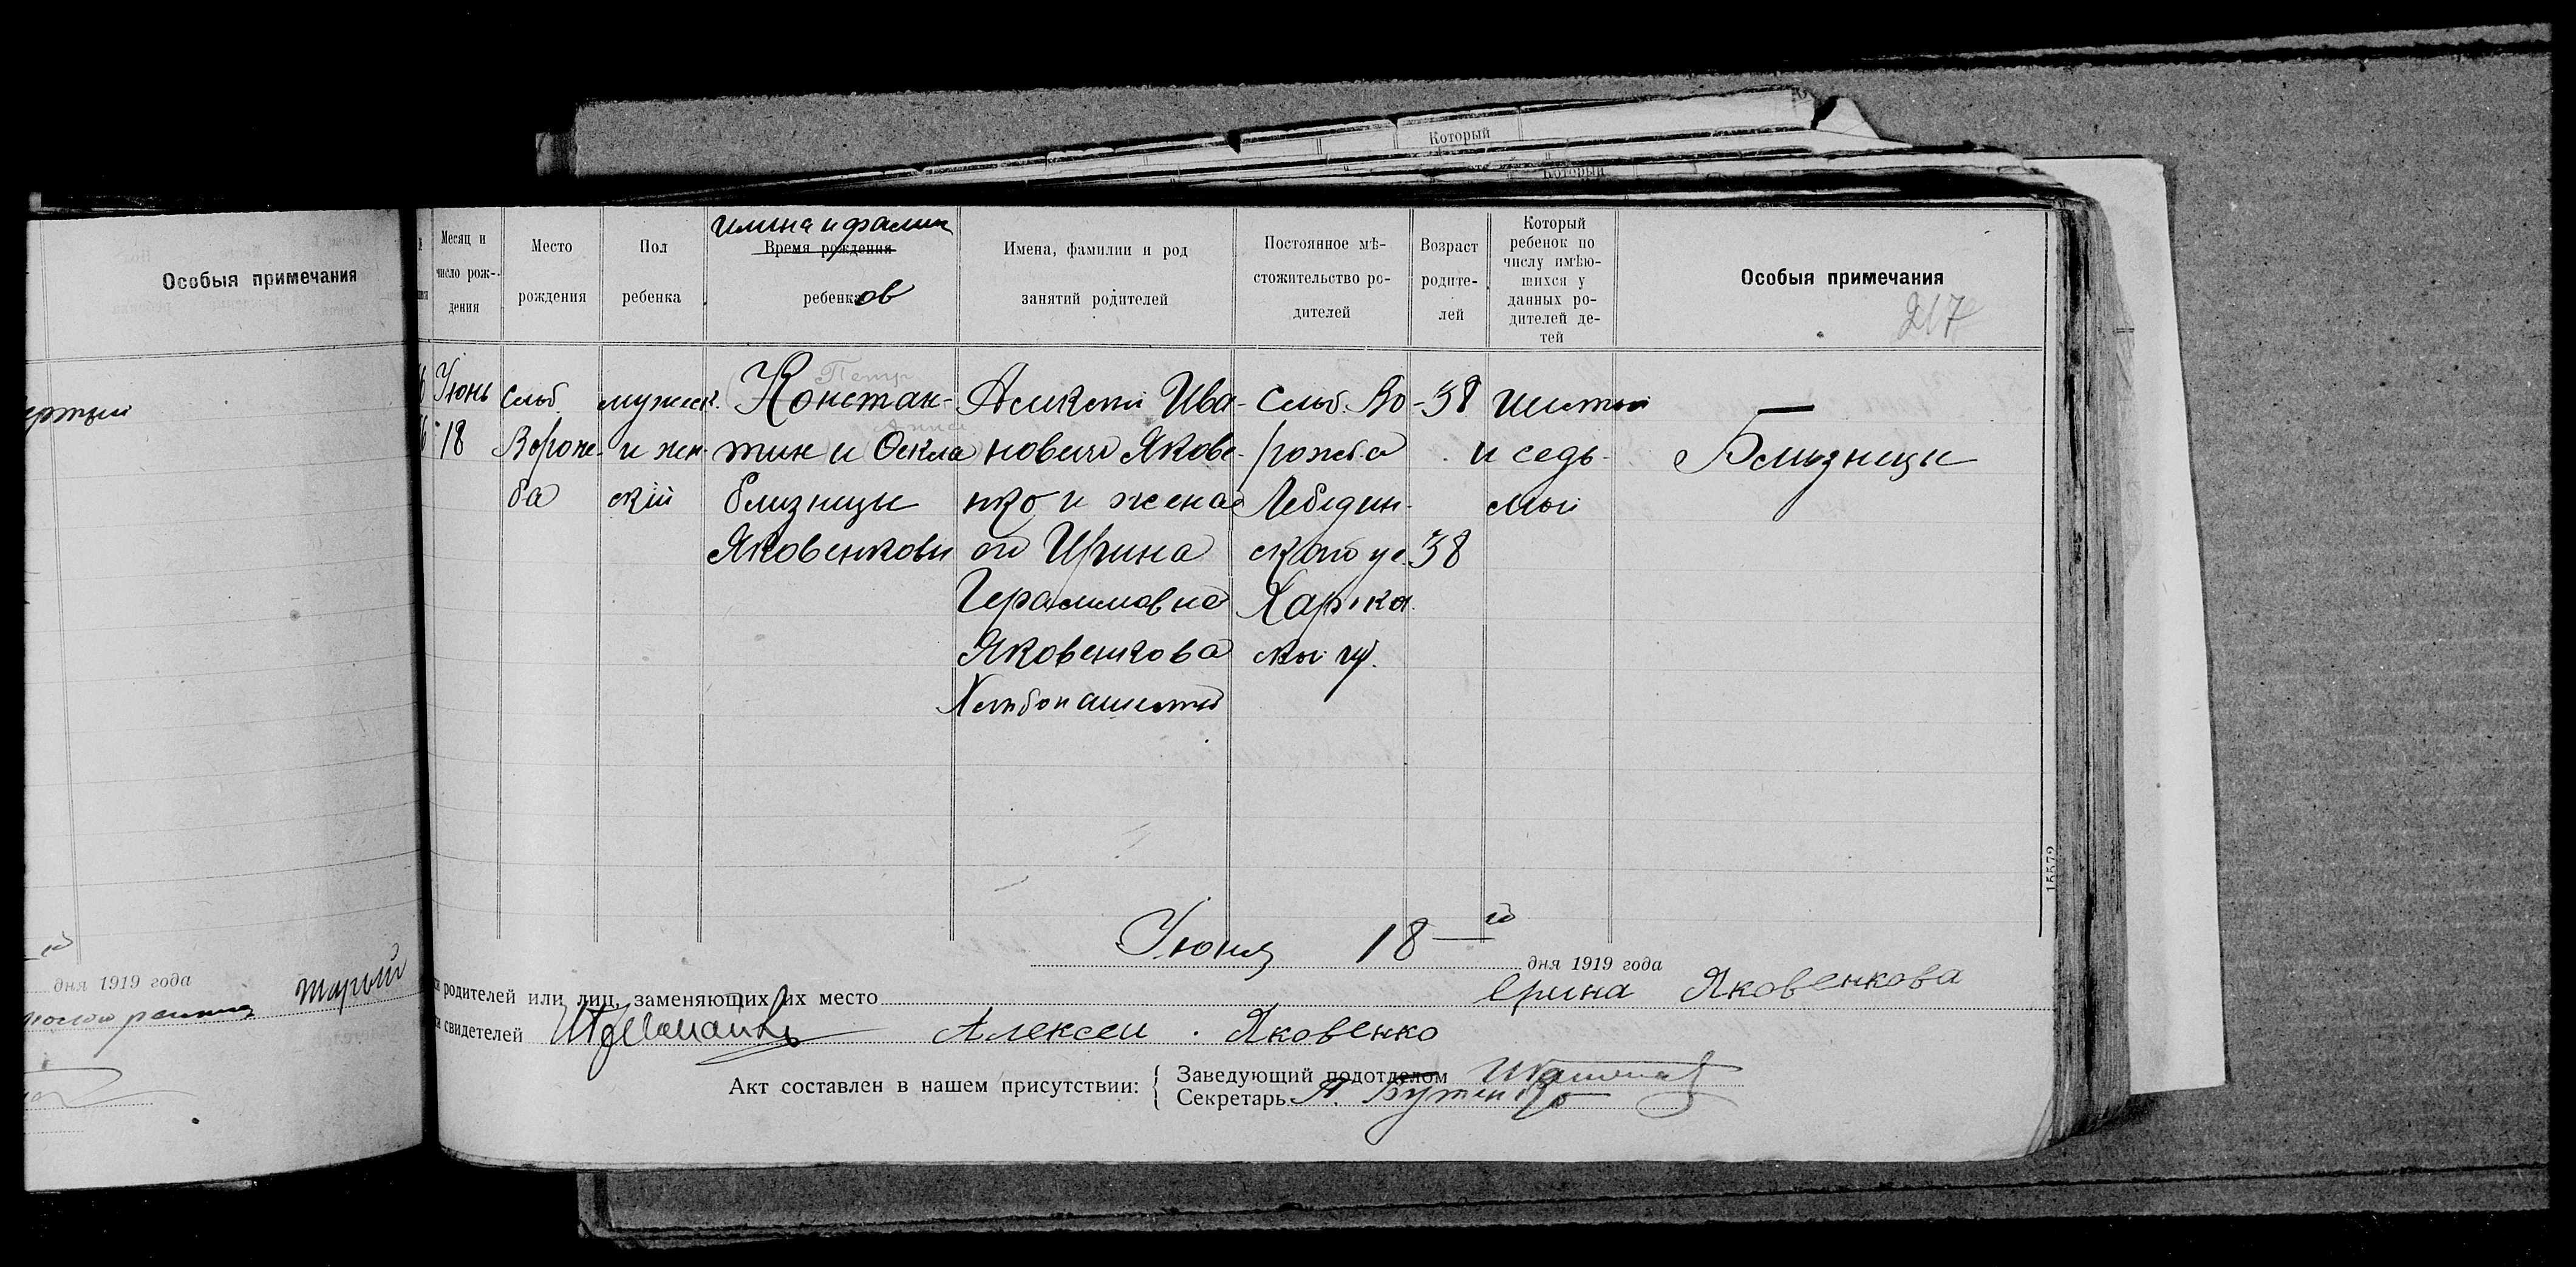 Который
Который
Особыя примечания
дня 1919 года
Месяц и число рождения
Место рождения
Пол ребенка
имена и фамил
Время рождения
ребенков
Имена, фамилии и род занятий родителей
Постоянное мѣстожительство родителей
Возраст родителей
Который ребенок по числу имѣющихся у данных родителей детей
Особыя примечания
217
Июнь
18
Слоб.
Вороже-
ба
мужеск.
и жен-
скій
Петр
Констан-
Анна
тин и Фекла
близнецы
Яковенковы
Алексей Ива-
новичЯкове-
нко и жена
его Ирина
Герасимовна
Яковенкова
Хлебопашество
Слоб. Во-
рожба
Лебедин-
ского уе.
Харьков.
ской губ.
38
38
шестой
и седь-
мой
—
Близнецы
15579
Июня 18-го дня 1919 года
родителей или лиц, заменяющих их место Ерина Яковенкова
свидетелей
Алексей Яковенко
Акт составлен в нашем присутствии:
Заведующий подотделом
Секретарь А. Бутенко